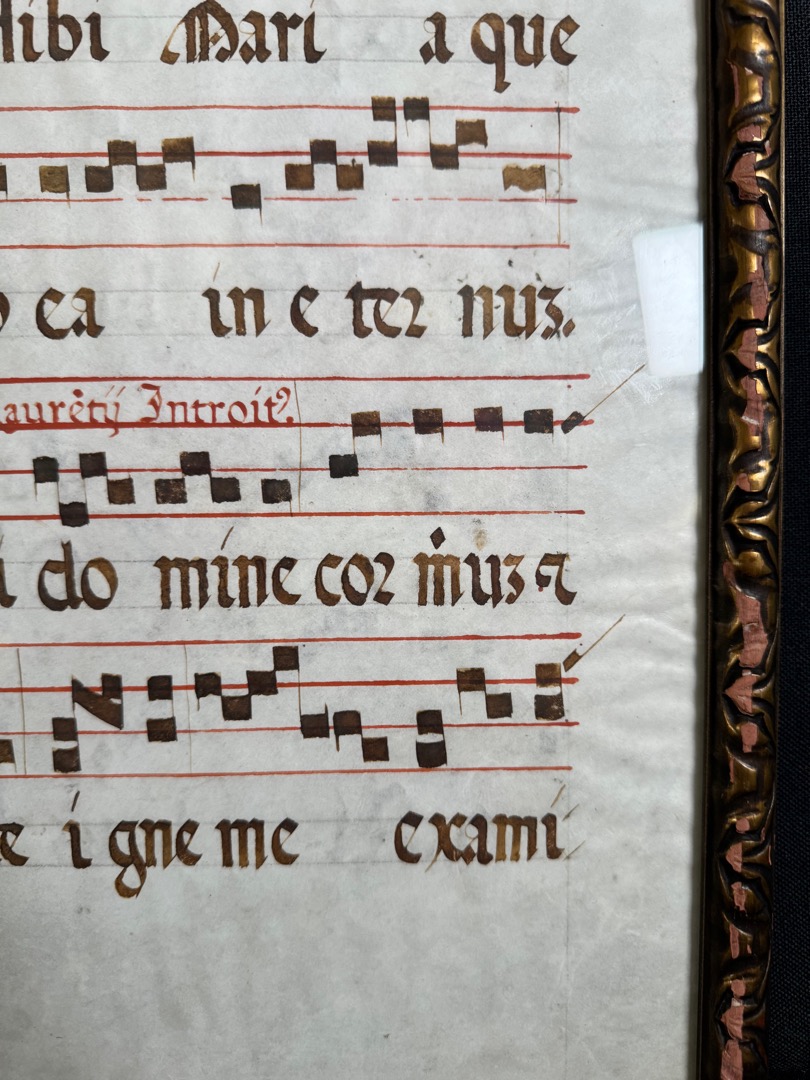 sibi Mari a que
ea in e ter nuʒ.
laurētij Introitꝰ.
i do mine cor m̄uʒ ⁊
te i gne me exami